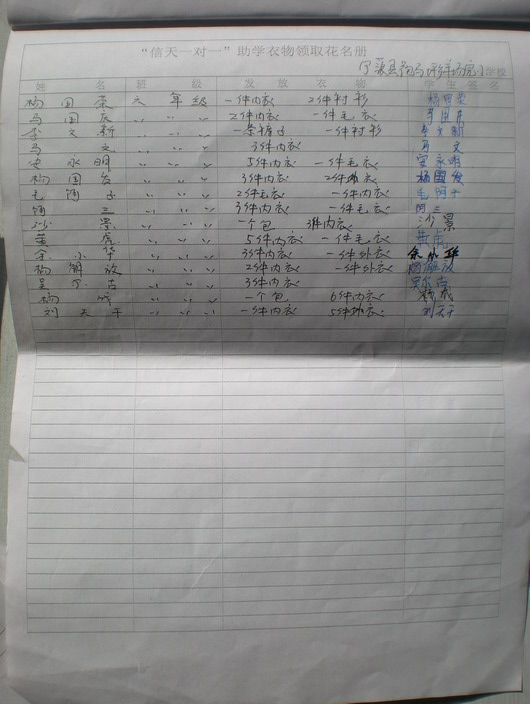 “信天一对一”助学衣物领取花名册
宁蒗县跑马坪 学校
姓 名 班 级 发 放 衣 物 学 生 签 名
杨国荣 六年级 一件内衣 2件衬衫 杨国荣
马国友 〃 〃 2件内衣 一件毛衣 马国友
李文新 〃 〃 一条裤子 一件衬衫 李文新
马文 〃 〃 3件内衣 马文
安永明 〃 〃 5件内衣 一件毛衣 安永明
杨国发 〃 〃 3件内衣 2件外衣 杨国发
毛阿子 〃 〃 2件毛衣 一件内衣 毛阿子
阿三 〃 〃 3件内衣 一件毛衣 阿三
沙景 〃 〃 一个包 3件内衣 沙景
虎 〃 〃 5件内衣 一件毛衣 虎
余小华 〃 〃 3件内衣 一件外衣 余小华
杨解放 〃 〃 2件内衣 一件外衣 杨解放
吴尔古 〃 〃 3件内衣 吴尔古
杨成 〃 〃 一个包 6件内衣 杨成
刘天干 〃 〃 一件内衣 5件外衣 刘天干